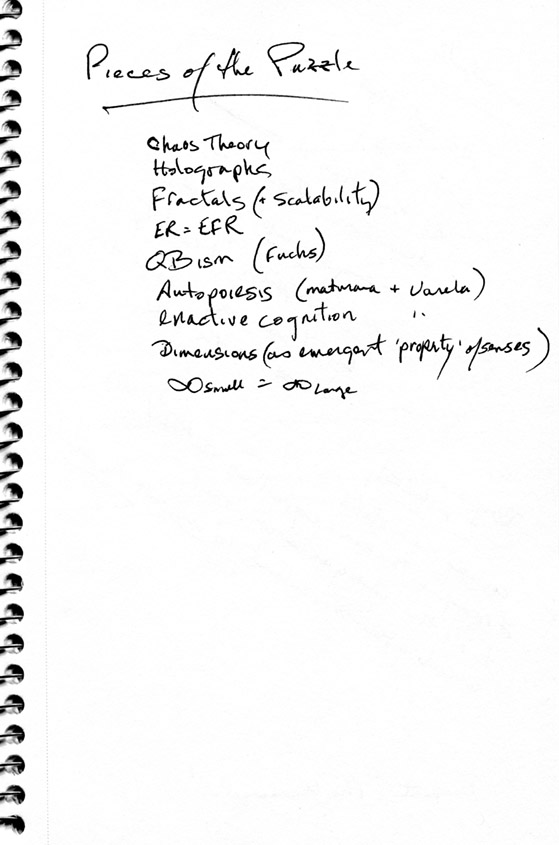 Pieces of the Puzzle
Chaos Theory
Holographs
Fractals (+ Scalability)
ER = EFR
QBism (Fuchs)
Autopoiesis (maturana + Varela)
enactive cognition "
Dimensions (as emergent 'property' of senses)
∞ small = ∞ Large